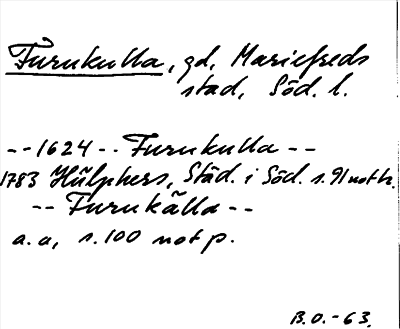 Furukulla, gd, Mariefreds
stad, Söd. l.
--1624-- Furukulla --
1783 Hülphers, Städ. i Söd. s. 91 not h.
-- Furukälla --
a.a, s. 100 not p.
B.O.-63.